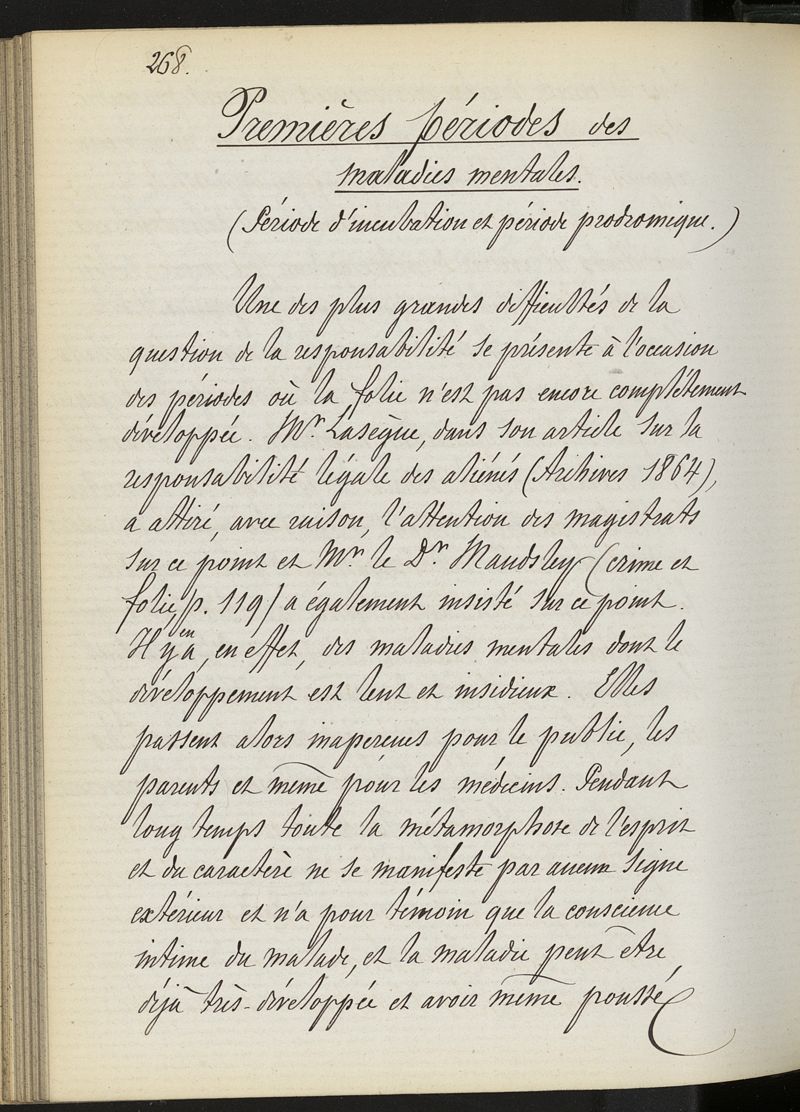 268.
Premières périodes des
maladies mentales.
(Période d'incubation et période prodromique.)
Une des plus grandes difficultés de la
question de la responsabilité se présente à l'occasion
des périodes où la folie n'est pas encore complétement
développée. Mr Lasègue, dans son article sur la
responsabilité légale des aliénés (Archives 1864),
a attiré, avec raison, l'attention des magistrats
sur ce point et Mr le Dr Maudsley (crime et
folie, p. 119) a également insisté sur ce point.
Il y en a, en effet, des maladies mentales dont le
développement est lent et insidieux. Elles
passent alors inaperçues pour le public, les
parents et même pour les médecins. Pendant
long temps toute la métamorphose de l'esprit
et du caractère ne se manifeste par aucun signe
extérieur et n'a pour témoin que la conscience
intime du malade, et la maladie peut être
déjà très-développée et avoir même poussé